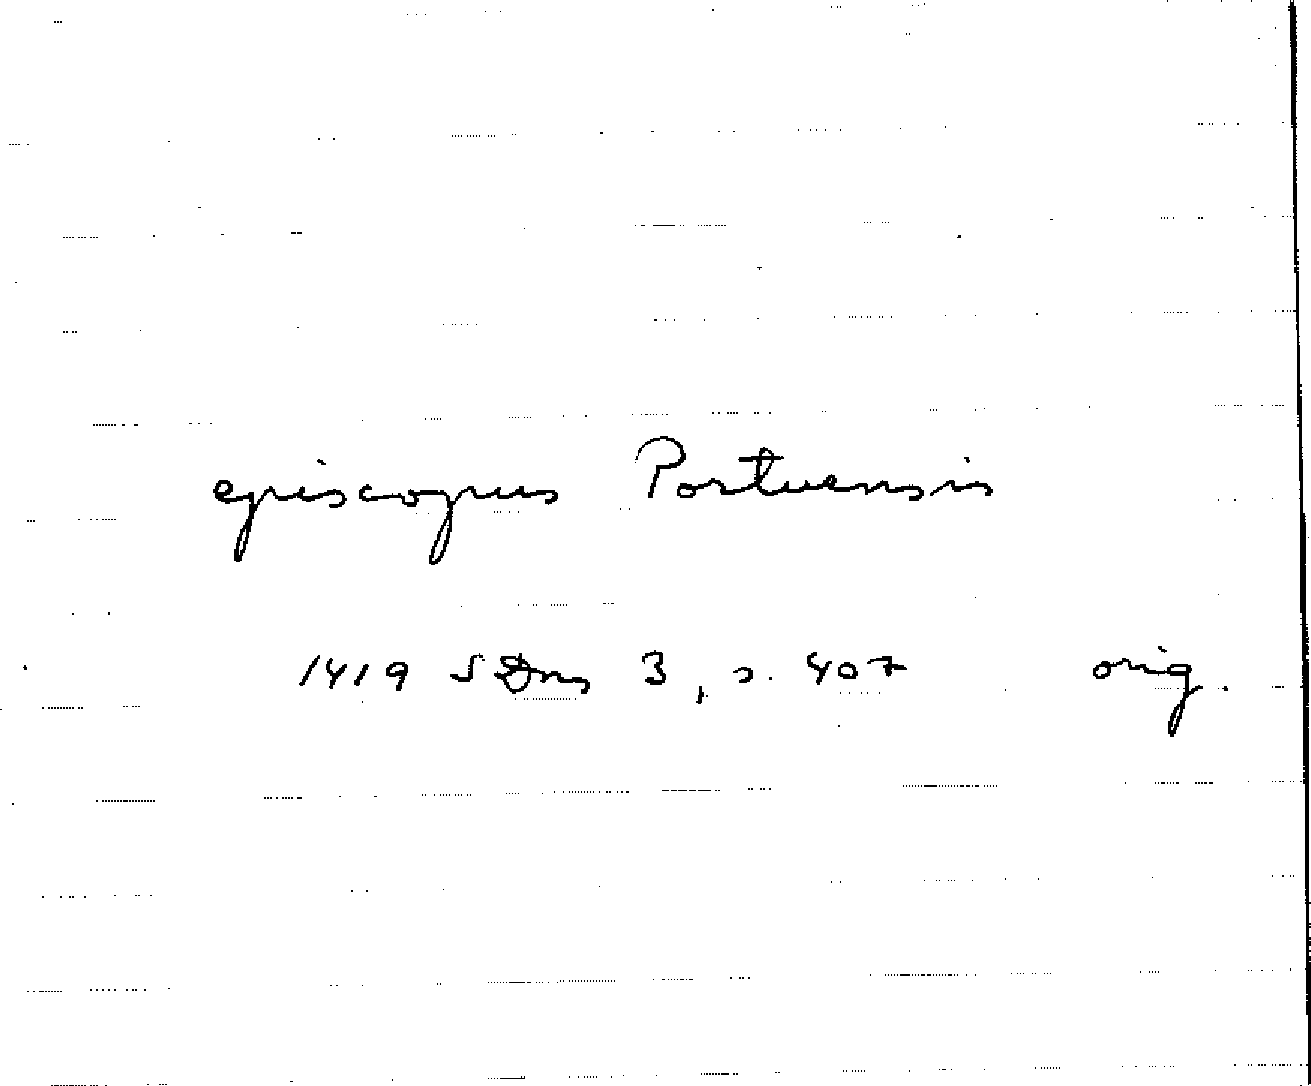 episcopus Portuensis
1419 SDns 3, s. 407 orig.